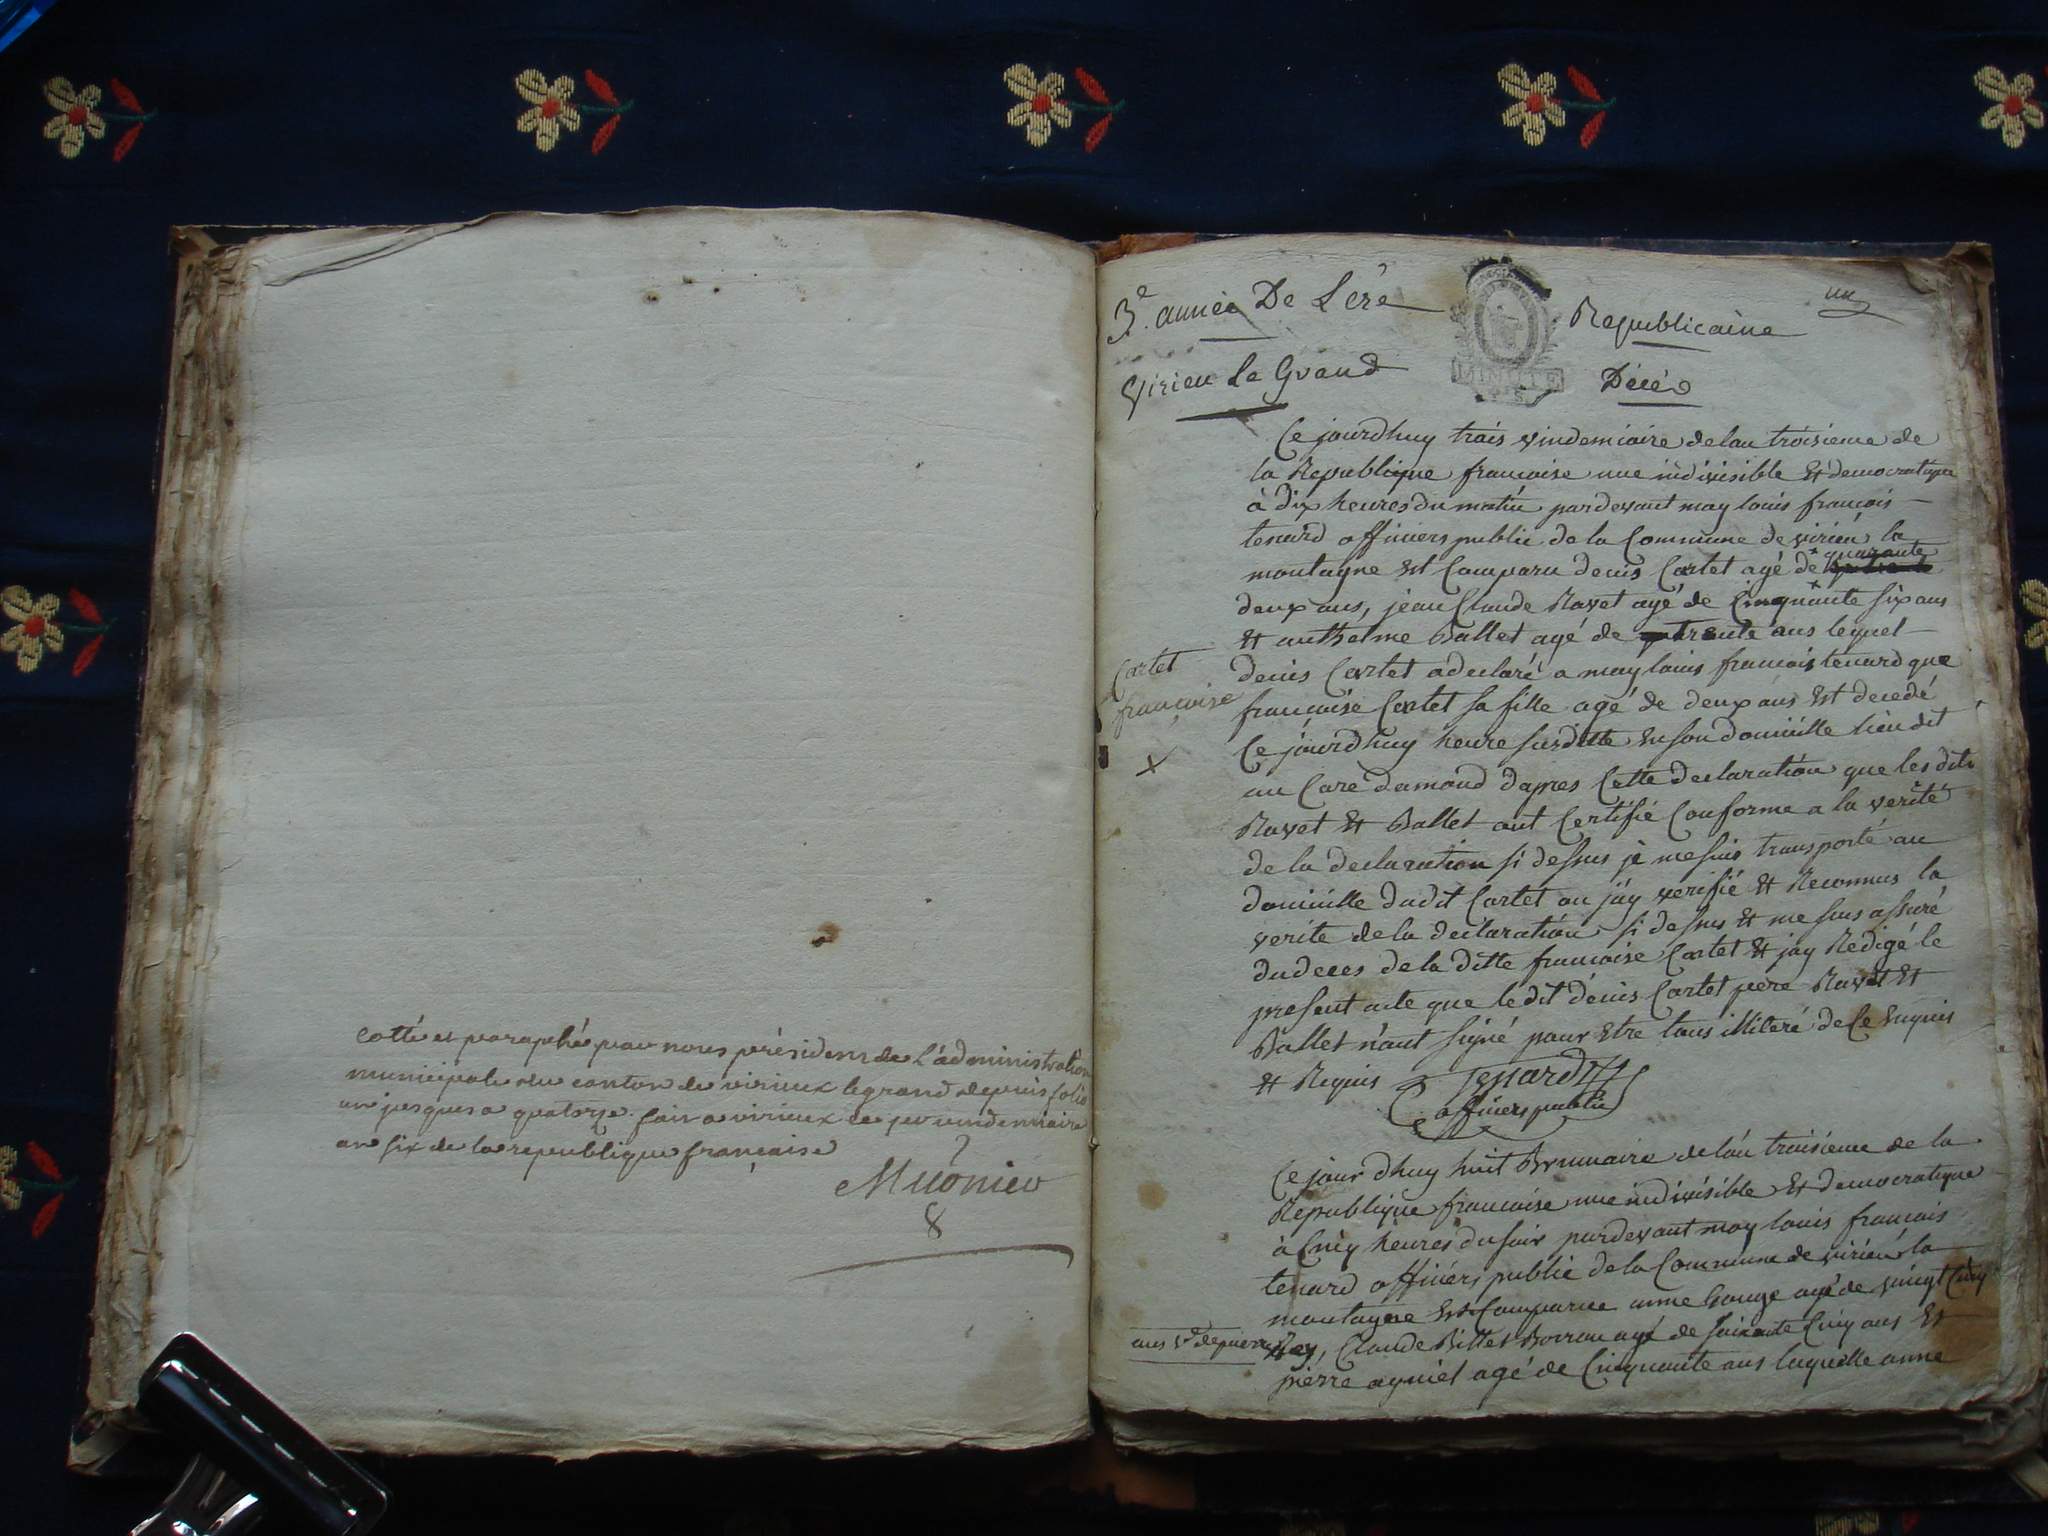 cotté et paraphé par nous président de l'administration
municipale du canton de virieux legrand depuis folio
un jusques a quatorze. fait a virieux ce per vendemiaire
an six de la republique française
Mugnier
8
un
3e. année De L'ére Republicaine
Virieu Le Grand Décés
Ce jourdhuy trois vindemiaire delan troisieme de
la Republique francoise une indivisible Et democratique
à dix heures du matin pardevant moy louis francois
tenard officiers public de la Commune de virieu la
quarante
montagne Est Comparu denis Cartet agé de
deux ans, jean Claude Ravet agé de Cinquante six ans
Et anthelme Ballet agé de trente ans lequel
denis Cartet a declaré a moy louis francois tenard que
Cartet
francoise
francoise Cartet sa fille agé de deux ans Est decedé
Ce jourdhuy heure susditte En son domicille lieu dit
X
au Care damond dapres Cette declaration que les dits
Ravet Et Ballet ont Certifié Conforme a la verité
de la declaration si dessus je me suis transporté au
domicille dudit Cartet ou jay verifié Et Reconnus la
verite de la declaration si dessus Et me suis assuré
du deces de la ditte francoise Cartet Et jay Redigé le
present acte que le dit denis Cartet pere Ravet Et
Ballet n'ont signé pour Etre tous illiteré de Ce Enquis
Et Requis Tenard
officiers public
Ce jour dhuy huit Brumaire de lan troisieme de la
Republique francoise une indivisible Et democratique
à Cinq heures du soir pardevant moy louis francois
tenard officiers public de la Commune de virieu la
montagne Est Comparue anne Gouge agé de vingt Cinq
ans Ve de pierre Rey, Claude Billet Borron agé de soixante Cinq ans Et
pierre ayniel agé de Cinquante ans laquelle anne